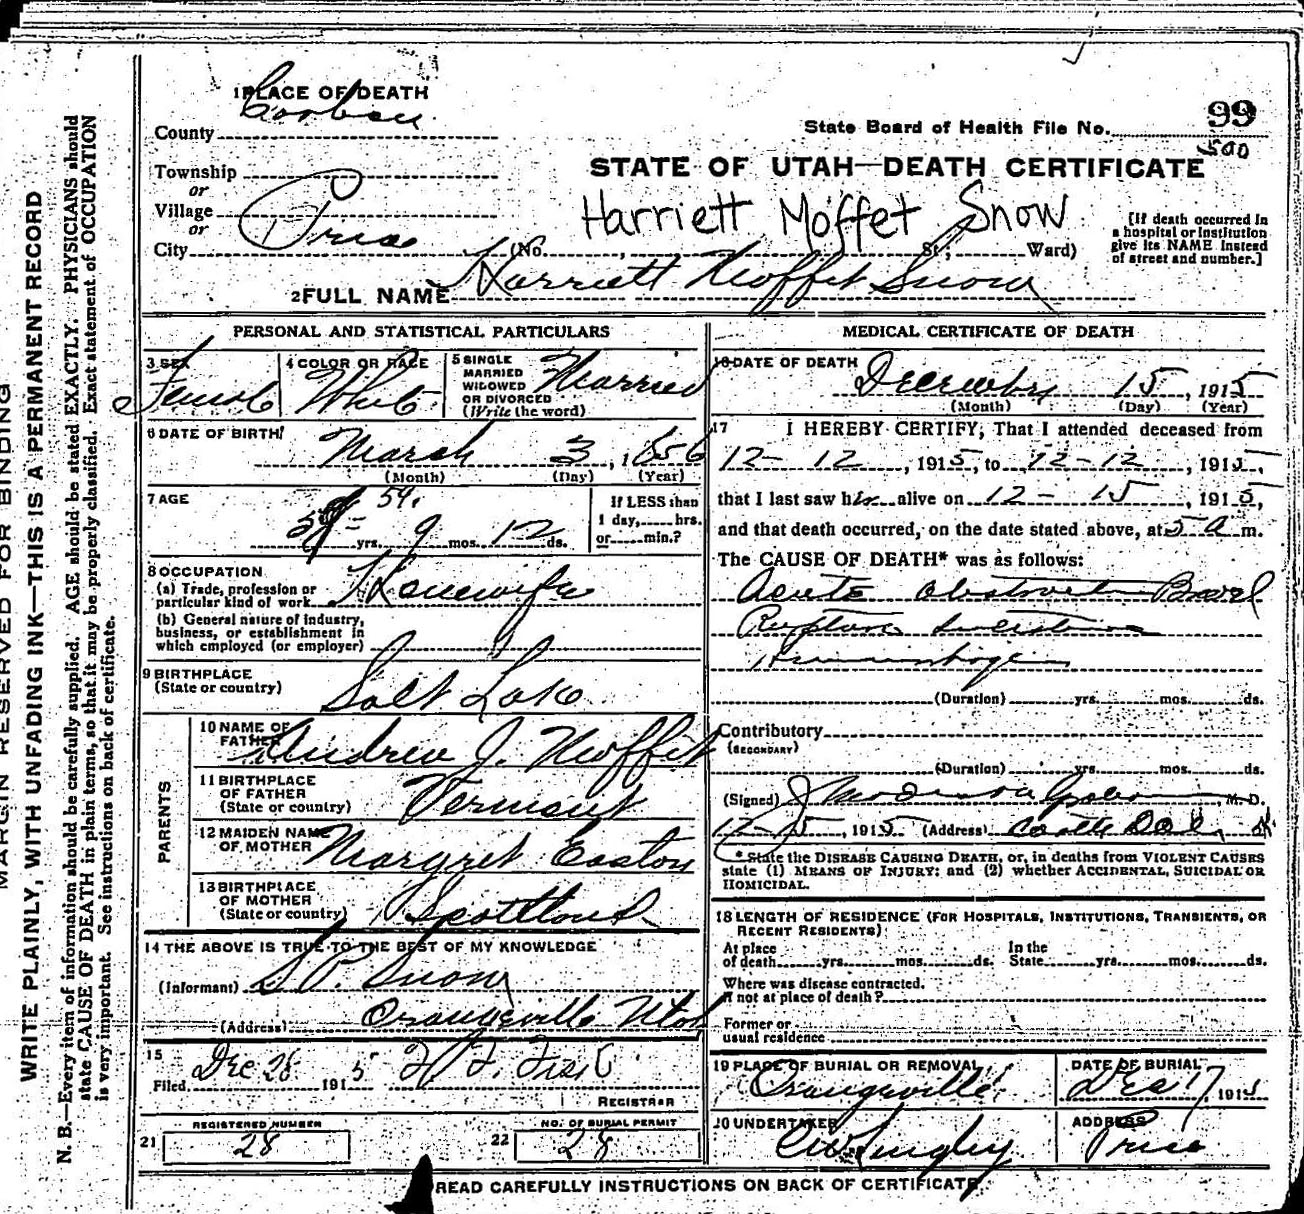 MARGIN RESERVED FOR BINDING
WRITE PLAINLY, WITH UNFADING INK—THIS IS A PERMANENT RECORD
N. B.—Every item of information should be carefully supplied. AGE should be stated EXACTLY. PHYSICIANS should
state CAUSE OF DEATH in plain terms, so that it may be properly classified. Exact statement of OCCUPATION
is very important. See instructions on back of certificate.
1 PLACE OF DEATH
County Carbon
Township
or
Village
or
City Price
State Board of Health File No. 99
500
STATE OF UTAH—DEATH CERTIFICATE
Harriett Moffet Snow
(No. , St.; Ward)
[If death occurred in
a hospital or institution
give its NAME instead
of street and number.]
2 FULL NAME Harriett Moffet Snow
PERSONAL AND STATISTICAL PARTICULARS
3 SEX Female
4 COLOR OR RACE White
5 SINGLE
MARRIED
WIDOWED
OR DIVORCED
(Write the word) Married
6 DATE OF BIRTH
March 3, 1856
(Month) (Day) (Year)
7 AGE
59.
yrs. 9 mos. 12 ds.
If LESS than
1 day, hrs.
or min.?
8 OCCUPATION
(a) Trade, profession or
particular kind of work Housewife
(b) General nature of industry,
business, or establishment in
which employed (or employer)
9 BIRTHPLACE
(State or country) Salt Lake
PARENTS
10 NAME OF
FATHER Andrew J. Moffett
11 BIRTHPLACE
OF FATHER
(State or country) Vermont
12 MAIDEN NAME
OF MOTHER Margret Easton
13 BIRTHPLACE
OF MOTHER
(State or country) Scottland
14 THE ABOVE IS TRUE TO THE BEST OF MY KNOWLEDGE
(Informant) S P. Snow
(Address) Orangeville Utah
15
Filed Dec 28 1915
REGISTRAR
REGISTERED NUMBER
21 28
NO. OF BURIAL PERMIT
22 28
MEDICAL CERTIFICATE OF DEATH
16 DATE OF DEATH
December 15, 1915
(Month) (Day) (Year)
17 I HEREBY CERTIFY, That I attended deceased from
12-12, 1915, to 12-12, 1915,
that I last saw her alive on 12-15, 1915,
and that death occurred, on the date stated above, at 5 a m.
The CAUSE OF DEATH* was as follows:
Acute Obstruction Bowel
Rupture Intestine
(Duration) yrs. mos. ds.
Contributory
(SECONDARY)
(Duration) yrs. mos. ds.
(Signed) , M. D.
12-15, 1915 (Address) Castle Dale,
* State the DISEASE CAUSING DEATH, or, in deaths from VIOLENT CAUSES
state (1) MEANS OF INJURY; and (2) whether ACCIDENTAL, SUICIDAL OR
HOMICIDAL.
18 LENGTH OF RESIDENCE (FOR HOSPITALS, INSTITUTIONS, TRANSIENTS, OR
RECENT RESIDENTS)
At place
of death yrs. mos. ds.
In the
State yrs. mos. ds.
Where was disease contracted.
If not at place of death?
Former or
usual residence
19 PLACE OF BURIAL OR REMOVAL
Orangeville
DATE OF BURIAL
Dec 17, 1915
20 UNDERTAKER
ADDRESS
Price
READ CAREFULLY INSTRUCTIONS ON BACK OF CERTIFICATE